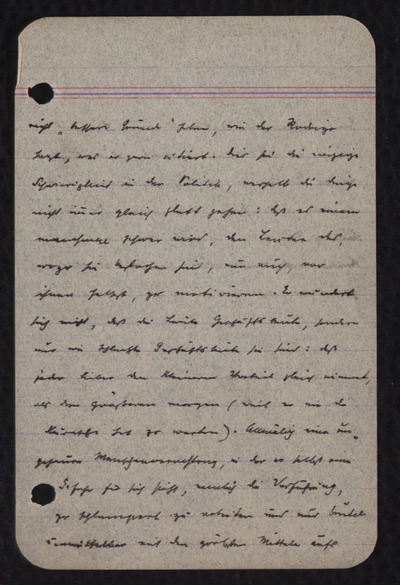 nicht „bessere Gründe“ haben, wie der Kardinal
sagt, was er gern zitiert. Dies sei die einzige
Schwierigkeit in der Politik, weshalb die Dinge
nicht immer gleich glatt gehen: daß es einem
manchmal schwer wird, den Leuten das,
wozu sie                sind, nun auch, vor
ihnen selbst, zu motivieren. Er wundert
sich nicht, daß die Leute Geschäftsleute, sondern
nur wie schlechte Geschäftsleute sie sind: daß
jeder lieber den kleineren Vorteil gleich nimmt,
als den größeren morgen (weil er nie die
        hat zu warten). Allmälig eine un-
geheure Menschenverachtung, in der er selbst eine
Gefahr für sich sieht, nemlich die Verführung,
zu schlampert zu arbeiten und nur brutal
unmittelbar mit den gröbsten Mitteln aufs